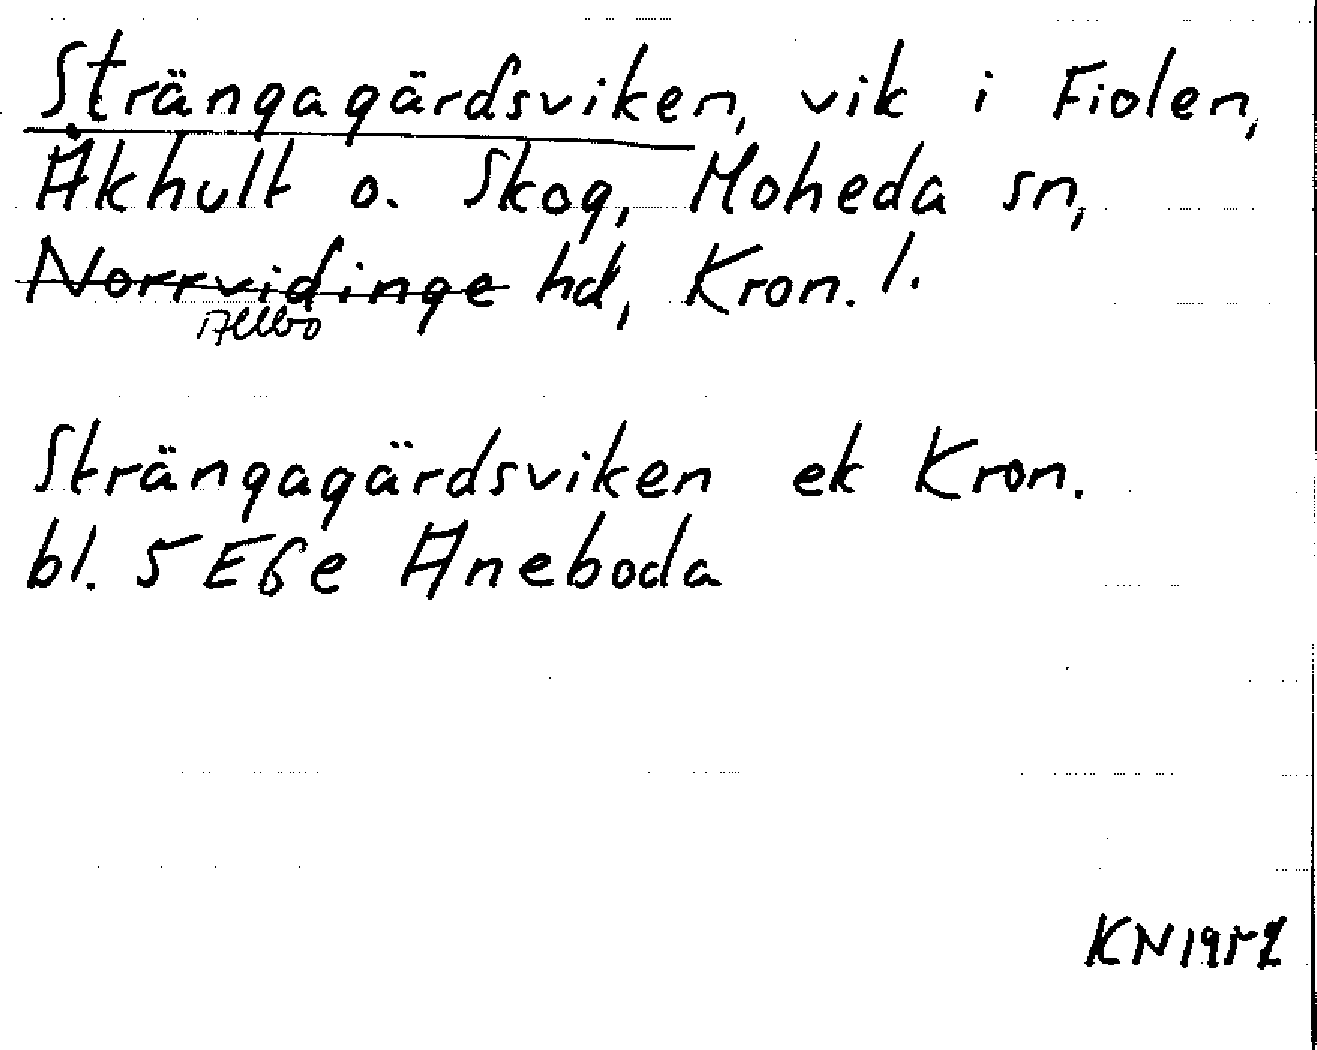 Strängagärdsviken, vik i Fiolen,
Åkhult o. Skog, Moheda sn,
Norrvidinge hd, Kron. l.
Allbo
Strängagärdsviken ek Kron.
bl. 5 E6e Aneboda
KN1952